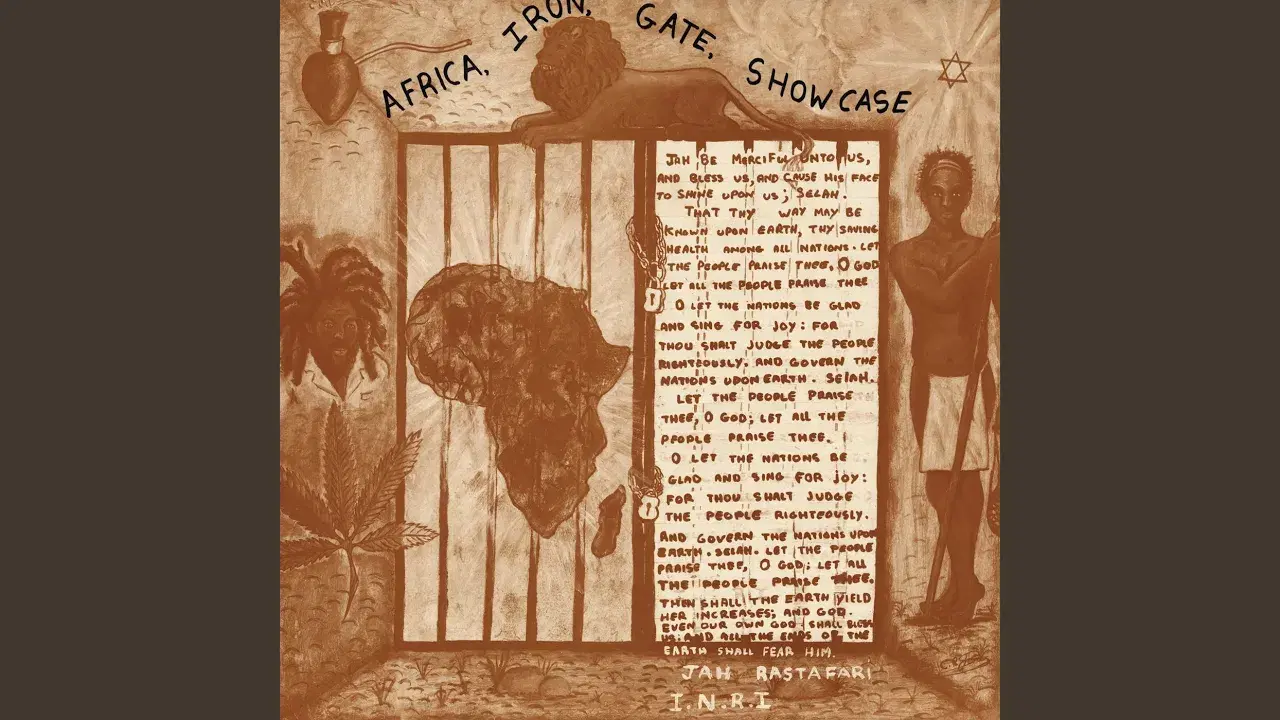 AFRICA, IRON, GATE, SHOWCASE
JAH BE MERCIFUL UNTO US,
AND BLESS US, AND CAUSE HIS FACE
TO SHINE UPON US; SELAH.
THAT THY WAY MAY BE
KNOWN UPON EARTH, THY SAVING
HEALTH AMONG ALL NATIONS. LET
THE PEOPLE PRAISE THEE, O GOD
LET ALL THE PEOPLE PRAISE THEE
O LET THE NATIONS BE GLAD
AND SING FOR JOY: FOR
THOU SHALT JUDGE THE PEOPLE
RIGHTEOUSLY, AND GOVERN THE
NATIONS UPON EARTH. SELAH.
LET THE PEOPLE PRAISE
THEE, O GOD; LET ALL THE
PEOPLE PRAISE THEE.
O LET THE NATIONS BE
GLAD AND SING FOR JOY:
FOR THOU SHALT JUDGE
THE PEOPLE RIGHTEOUSLY.
AND GOVERN THE NATIONS UPON
EARTH. SELAH. LET THE PEOPLE
PRAISE THEE, O GOD; LET ALL
THE PEOPLE PRAISE THEE.
THEN SHALL THE EARTH YIELD
HER INCREASES; AND GOD.
EVEN OUR OWN GOD SHALL BLESS
US: AND ALL THE ENDS OF THE
EARTH SHALL FEAR HIM.
JAH RASTAFARI
I.N.R.I